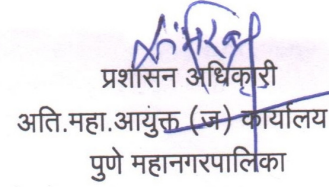 प्रशासन अधिकारी
अति.महा.आयुक्त (ज) कार्यालय
पुणे महानगरपालिका